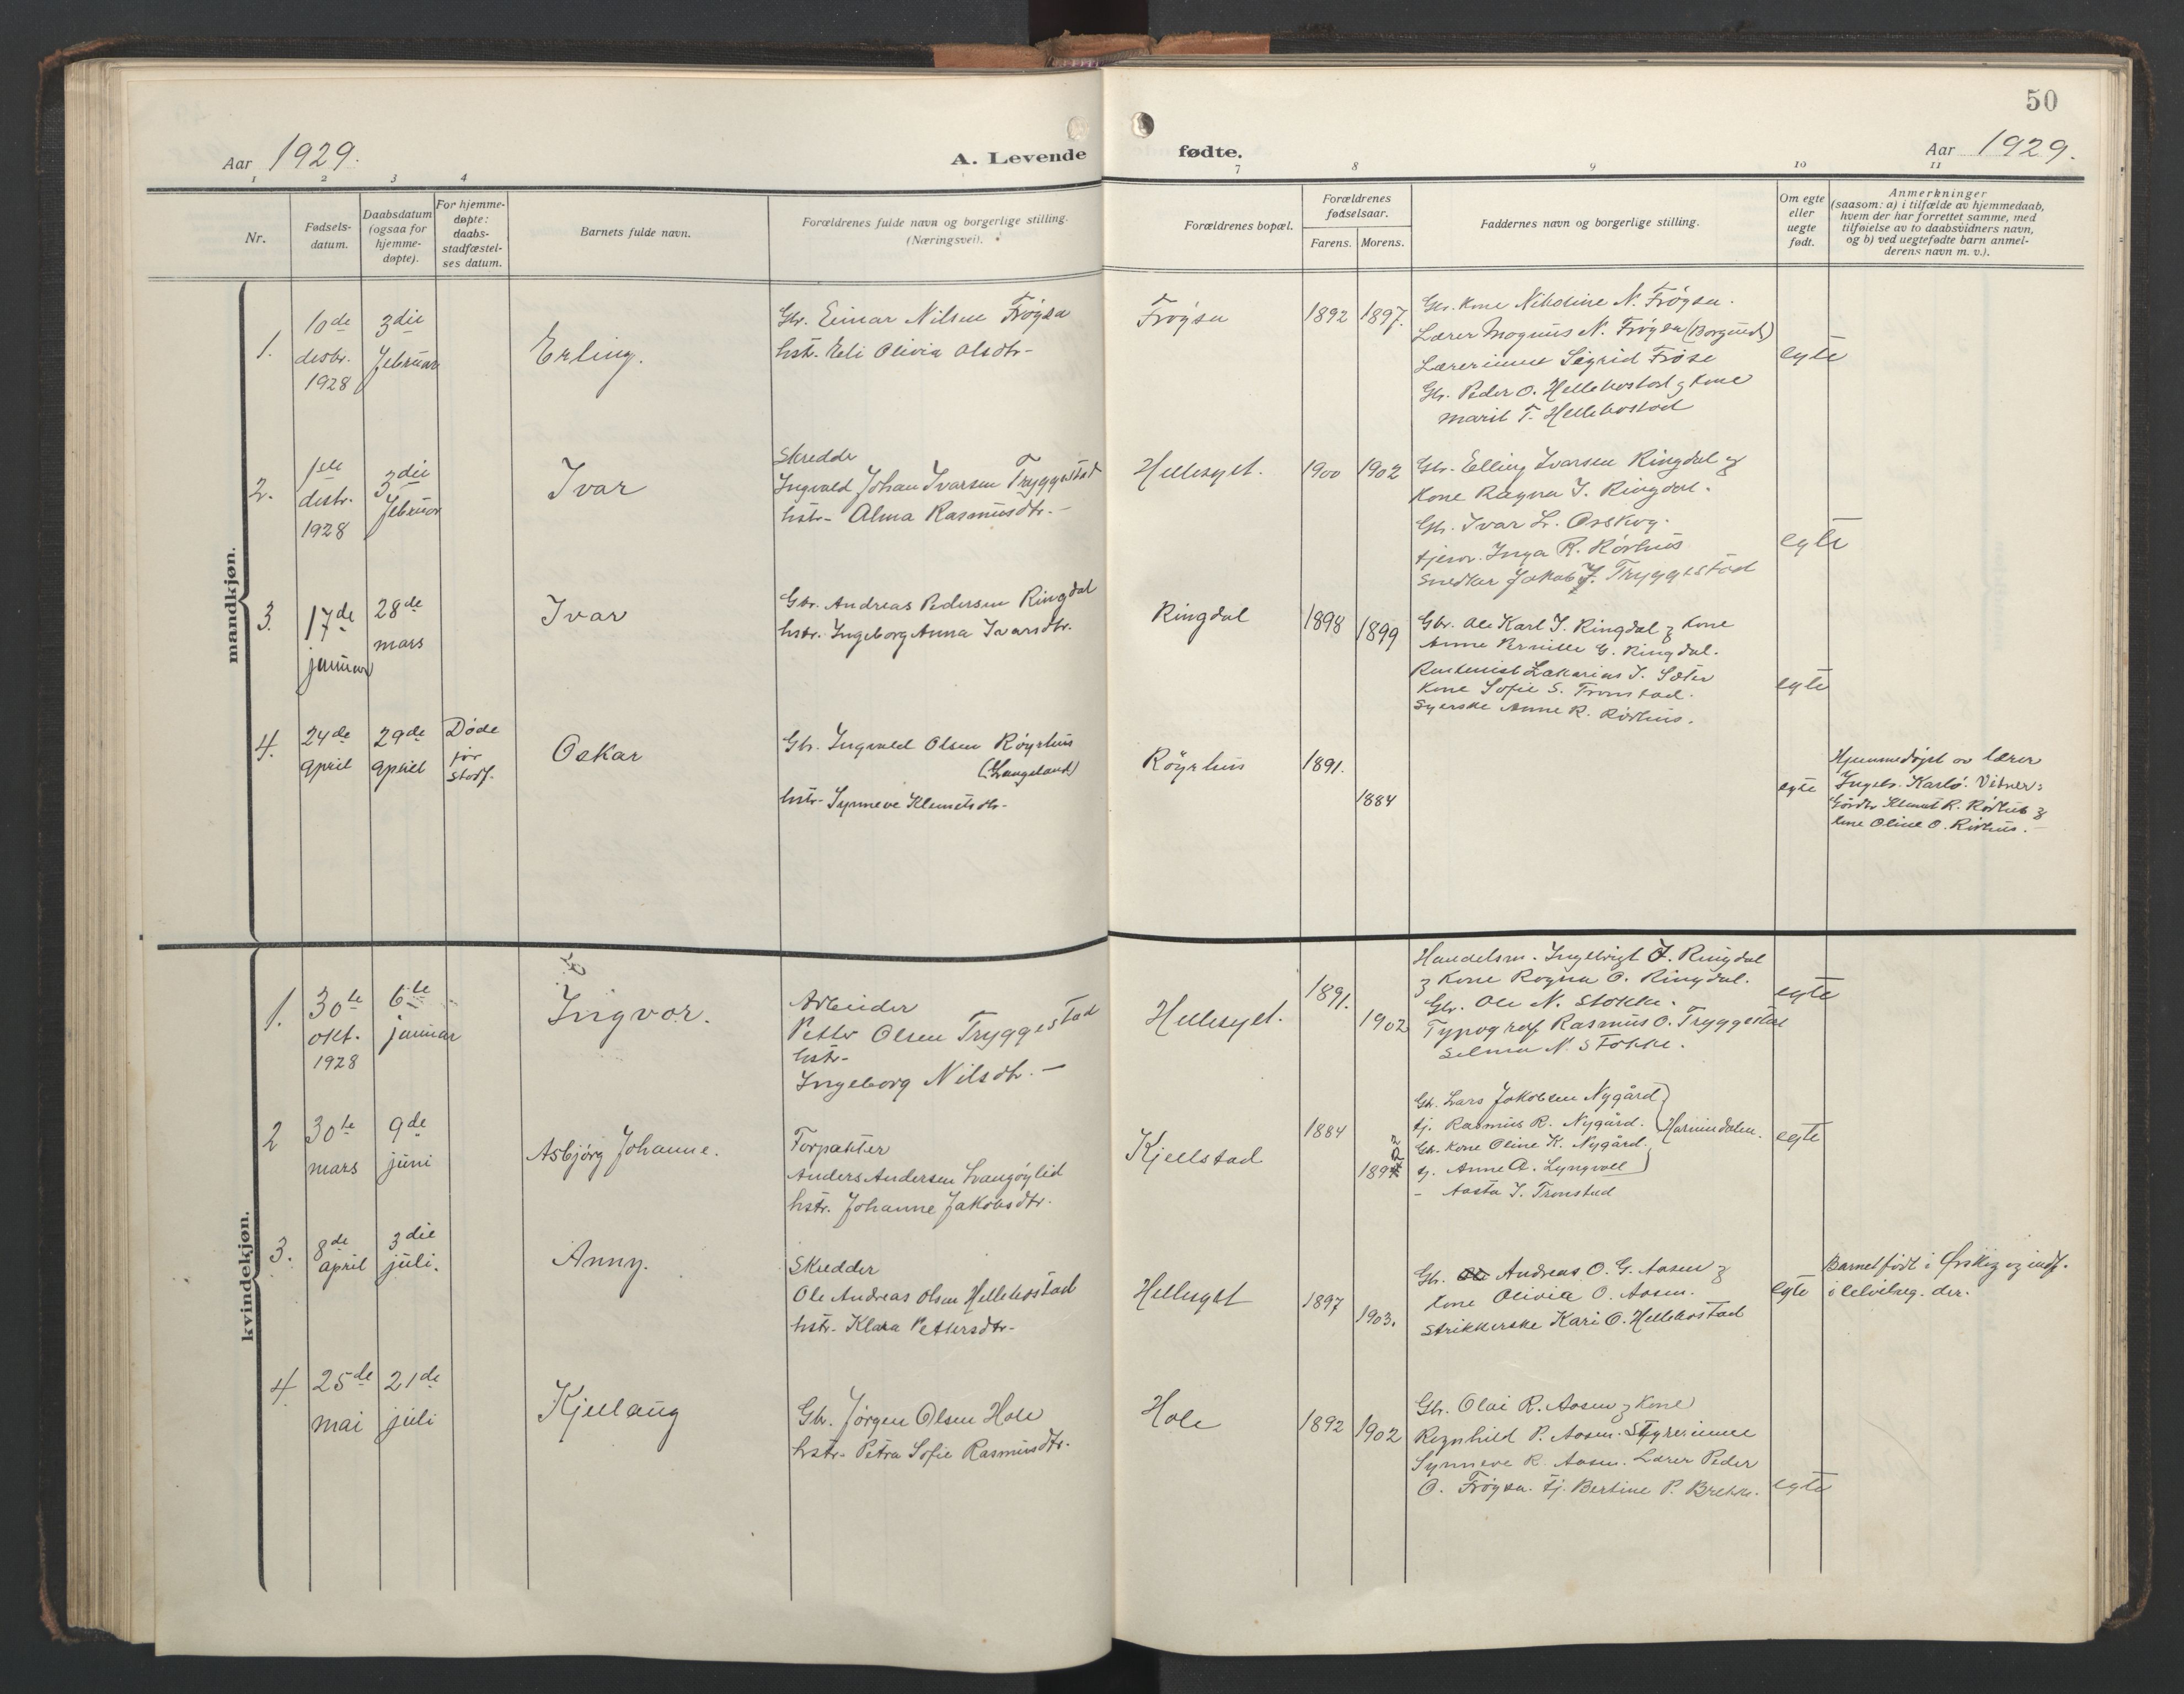 50
Aar 1929.
A. Levende fødte.
Aar 1929.
1 2 3 4 7 8 9 10 11
Nr.
Fødsels-
datum.
Daabsdatum
(ogsaa for
hjemme-
døpte).
For hjemme-
døpte:
daabs-
stadfæstel-
ses datum.
Barnets fulde navn.
Forældrenes fulde navn og borgerlige stilling.
(Næringsvei).
Forældrenes bopæl.
Forældrenes
fødselsaar.
Farens. Morens.
Faddernes navn og borgerlige stilling.
Om egte
eller
uegte
født.
Anmerkninger
(saasom: a) i tilfælde av hjemmedaab,
hvem der har forrettet samme, med
tilføielse av to daabsvidners navn,
og b) ved uegtefødte barn anmel-
derens navn m. v.).
mandkjøn.
1.
10de
desbr.
1928
3die
februar
Erling.
Gbr. Einar Nilsen Frøysa
hstr. Eli Olivia Olsdtr-
Frøysa
1892 1897.
Gbr. kone Nikoline N. Frøysa.
Lærer Magnus N. Frøysa (Borgund)
Lærerinne Sigrid Frøise
Gbr. Peder O. Hellebostad & kone
Marit T. Hellebostad
egte
2.
1ste
desbr.
1928
3die
februar
Ivar
Skredder
Ingvald Johan Ivarsen Tryggestad
hstr- Alma Rasmusdtr.-
Hellesylt.
1900 1902
Gbr. Elling Ivarsen Ringdal &
kone Ragna I. Ringdal.
Gbr. Ivar L. Orskog.
tjener. Inga R. Rørhus
Snedker Jakob J. Tryggestad
egte
3.
17de
januar
28de
mars
Ivar
Gbr. Andreas Pedersen Ringdal
hstr. Ingeborg Anna Ivarsdtr.
Ringdal
1898 1899
Gbr. Ole Karl I. Ringdal & kone
Anne Pernille G. Ringdal.
Zakarias I. Sæter
Kone Sofie S. Tronstad.
Syerske Anne R. Rørhus.
egte
4.
24de
april
29de
april
Døde
før
stadf.
Oskar
Gbr. Ingvald Olsen Røyrhus
(Langeland)
hstr- Synneve Klemetsdtr-
Røyrhus
1891.
1884
egte
Hjemmedøpt av lærer
Ingebr. Karlsø. Vitner:
Gårdbr Klemet R. Rørhus &
kone Oline O. Rørhus.-
kvindekjøn.
1.
30te
okt.
1928
6te
januar
Ingvor.
Arbeider
Petter Olsen Tryggestad
hstr-
Ingeborg Nilsdtr.-
Hellesylt.
1891.
1902
Handelsm. Ingebrigt J. Ringdal
& kone Ragna O. Ringdal.
Gbr. Ole N. Stokke.
Typograf Rasmus O. Tryggestad
Selma N. Stokke.
egte
2
30te
mars
9de
juni
Asbjørg Johanne.
Forpakter
Anders Andersen Langøylid
hstr. Johanne Jakobsdtr.
Kjellstad
1884
Gbr. Lars Jakobsen Nygård
tj. Rasmus R. Nygård.
Gbr. kone Oline K. Nygård.
tj. Anne A. Lyngvoll
- Aasta I. Tronstad
egte
3.
8de
april
3die
juli.
Anny.
Skredder
Ole Andreas Olsen Hellebostad
hstr. Klara Pettersdtr-
Hellesylt
1897
1903.
Gbr. Andreas O. G. Aasen &
kone Olivia O. Aasen.
Strikkerske Kari O. Hellebostad
egte
Barnet født i Ørskog og indf.
i der.
4.
25de
mai
21de
juli
Kjellaug
Gbr. Jørgen Olsen Hole
hstr. Petra Sofie Rasmusdtr.
Hole
1892 1902
Gbr. Olai R. Aasen & kone
Ragnhild P. Aasen. Styrerinne
Synneve R. Aasen. Lærer Peder
O. Frøysa. tj. Bertine P. Brekke.
egte